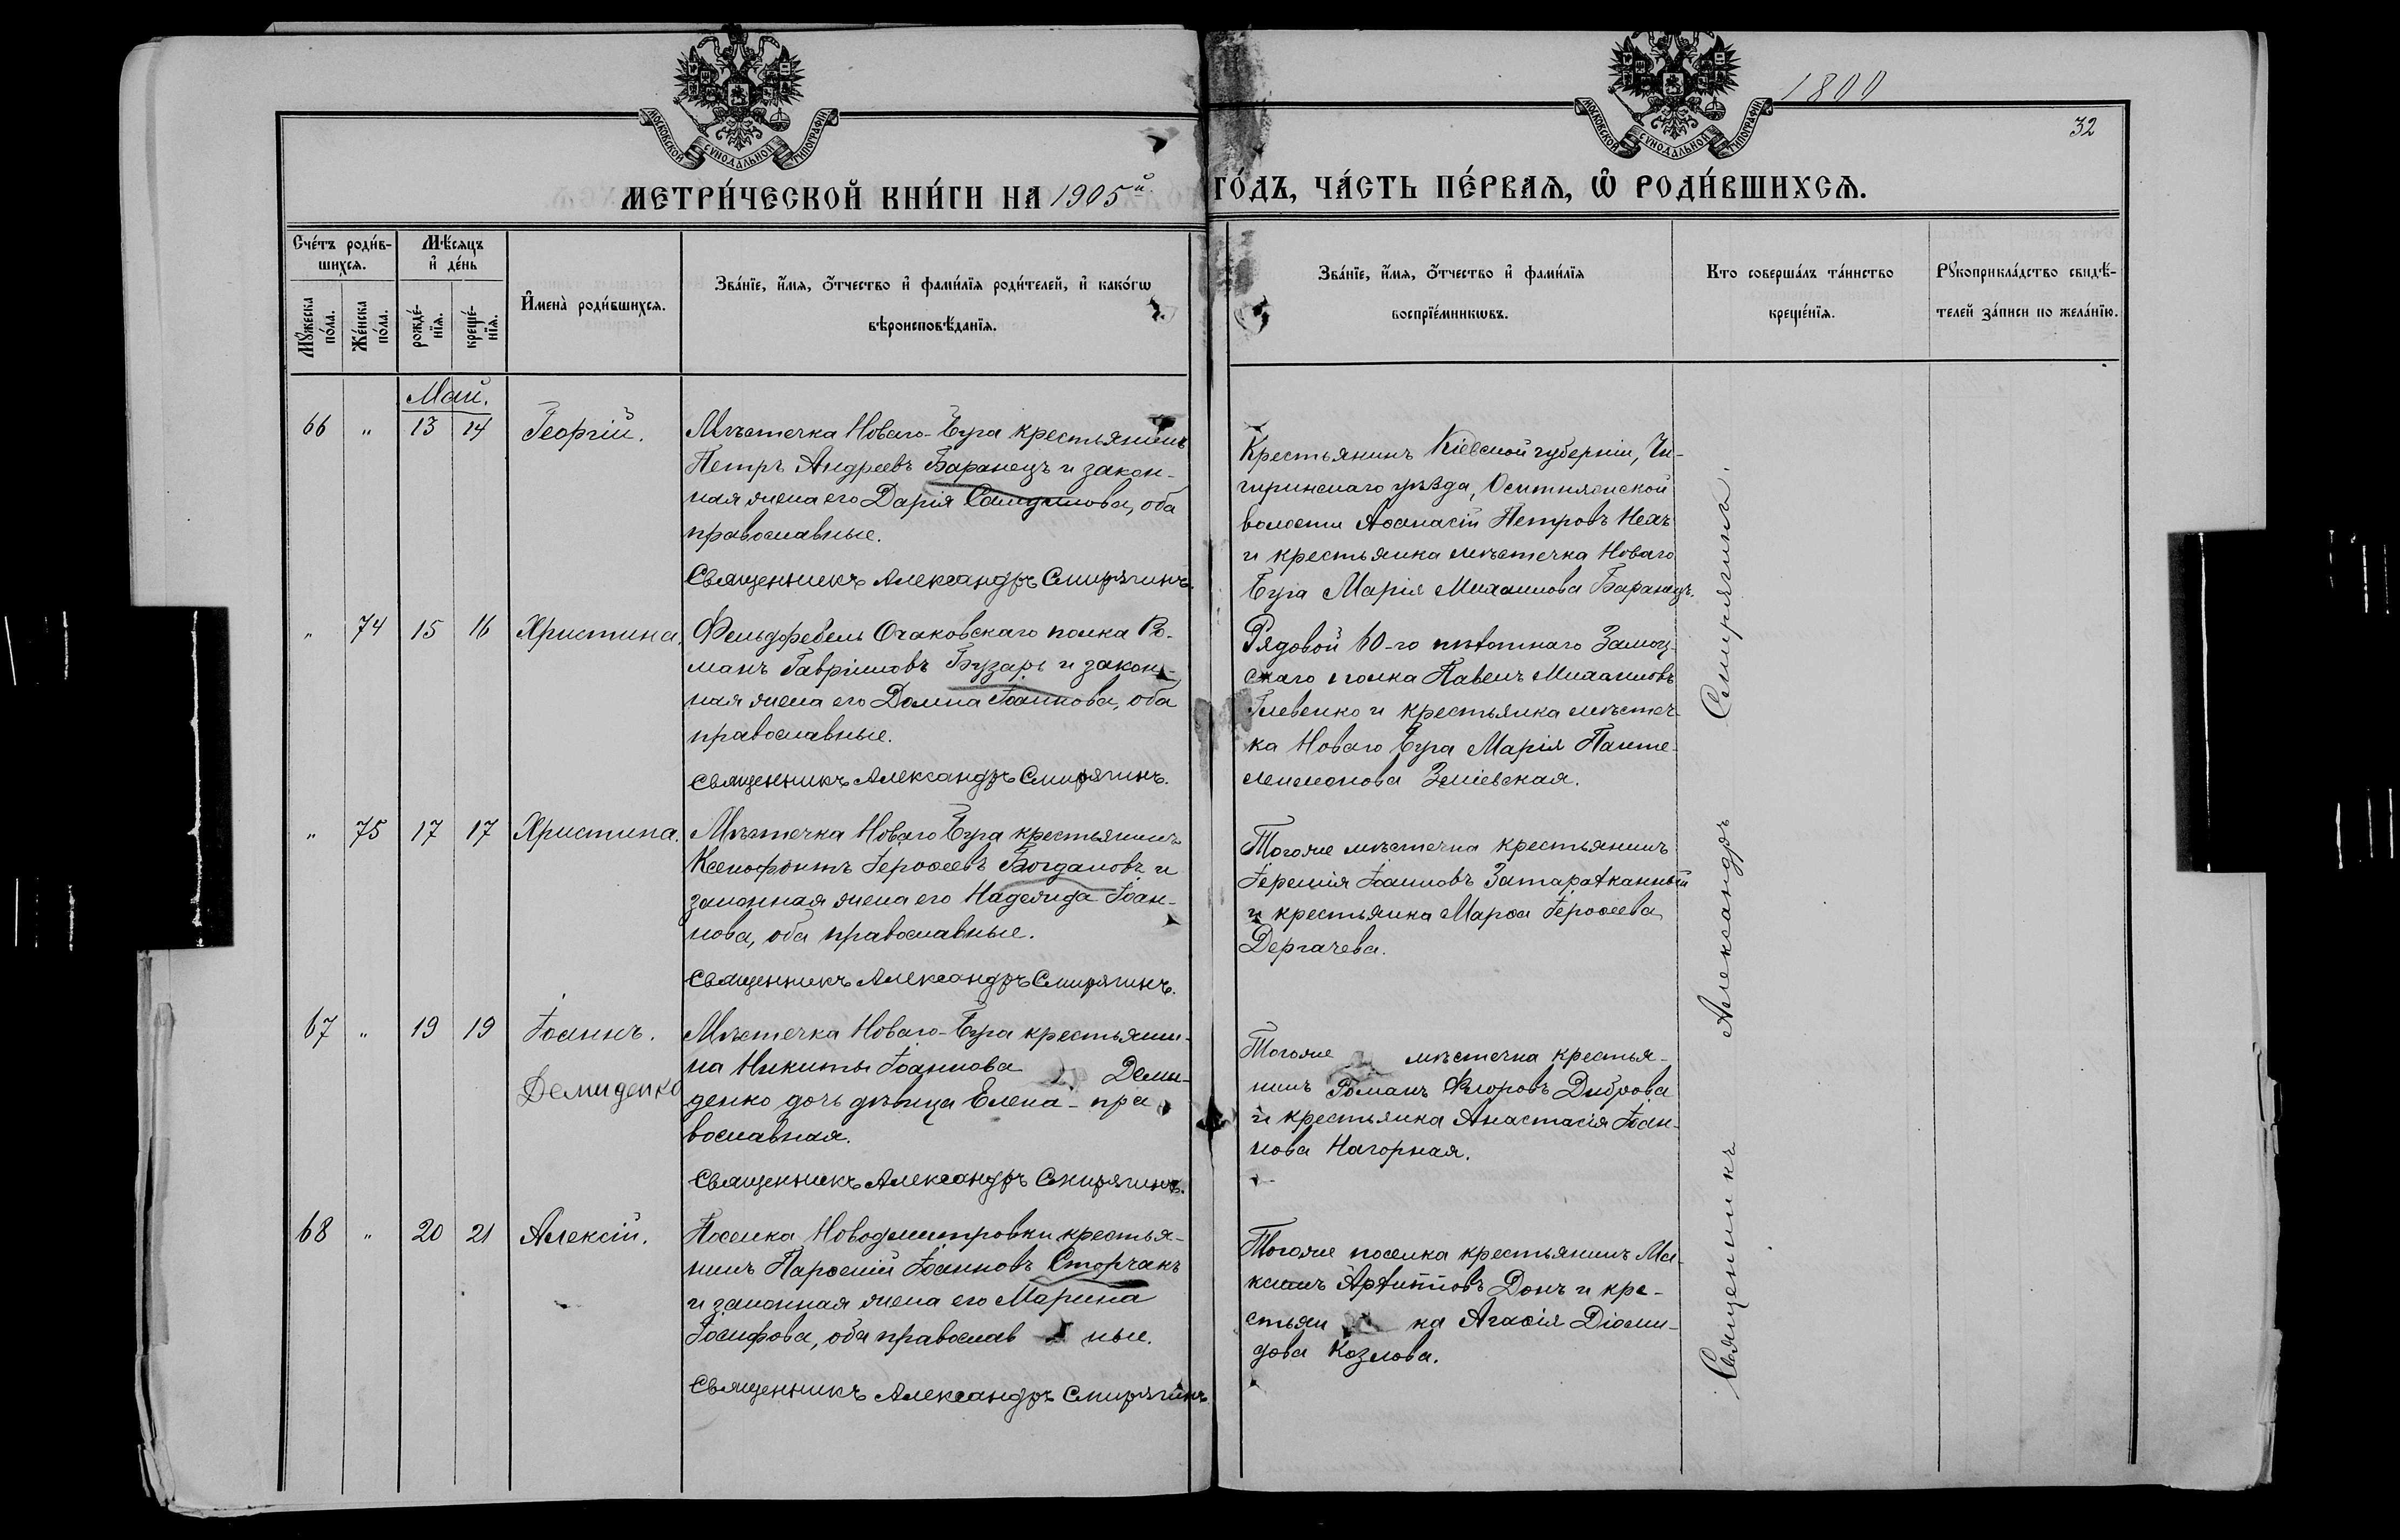 МОСКОВСКОЙ СѴНОДАЛЬНОЙ ТИПОГРАФІИ
МОСКОВСКОЙ СѴНОДАЛЬНОЙ ТИПОГРАФІИ
1800
32
МЕТРИ́ЧЕСКОЙ КНИ́ГИ НА 1905й
ГО́ДЪ, ЧА́СТЬ ПЕ́РВАѦ, Ѡ҆ РОДИ́ВШИХСѦ.
Сче́тъ роди́в-
шихсѧ.
Мꙋжеска по́ла.
Же́нска по́ла.
Мѣ́сѧцъ
и҆ де́нь
рожде́-
нїѧ.
креще́-
нїѧ.
И҆мена̀ роди́вшихсѧ.
Зва́нїе, и҆́мѧ, ѻ҆́тчество и҆ фами́лїѧ роди́телей, и҆ како́гѡ
вѣроисповѣ́данїѧ.
Зва́нїе, и҆́мѧ, ѻ҆́тчество и҆ фами́лїѧ
воспрїе́мникѡвъ.
Кто соверша́лъ та́инство
креще́нїѧ.
Рꙋкоприкла́дство свидѣ́-
телей за́писи по жела́нїю.
Май.
66 " 13 14 Георгій.
Мѣстечка Новаго-Буга крестьянинъ
Петръ Андреевъ Баранецъ и закон-
ная жена его Дарія Самуилова, оба
православные.
Священникъ Александръ Смирягинъ.
Крестьянинъ Кіевской губерніи, Чи-
гиринскаго уѣзда, Оситняжской
волости Аѳанасій Петровъ Нехъ
и крестьянка мѣстечка Новаго
Буга Марія Михаилова Баранецъ.
" 74 15 16 Христина.
Фельдфебель Очаковскаго полка Ро-
манъ Гавріиловъ Бузарь и закон-
ная жена его Домна Іоаннова, оба
православные.
Священникъ Александръ Смирягинъ.
Рядовой 60-го пѣхотнаго Замоц-
скаго полка Павелъ Михаиловъ
Глевенко и крестьянка мѣстеч-
ка Новаго Буга Марія Панте-
леимонова Зміевская.
" 75 17 17 Христина.
Мѣстечка Новаго Буга крестьянинъ
Ксенофонтъ Іероѳеевъ Богдановъ и
законная жена его Надежда Іоан-
нова, оба православные.
Священникъ Александръ Смирягинъ.
Тогоже мѣстечка крестьянинъ
Іеремія Іоанновъ Затараканный
и крестьянка Марѳа Іероѳеева
Дергачева.
67 " 19 19 Іоаннъ.
Демиденко
Мѣстечка Новаго-Буга крестьяни-
на Никиты Іоаннова Деми-
денко дочь дѣвица Елена - пра
вославная.
Священникъ Александръ Смирягинъ.
Тогоже мѣстечка крестья-
нинъ Романъ Флоровъ Диброва
и крестьянка Анастасія Іоан-
нова Нагорная.
68 " 20 21 Алексій.
Поселка Новодмитровки крестья-
нинъ Парѳеній Іоанновъ Сторчакъ
и законная жена его Марина
Іосифова, оба православ ные.
Священникъ Александръ Смирягинъ
Тогоже поселка крестьянинъ Ма-
ксимъ Архипповъ Донъ и кре-
стьян ка Агаѳія Діоми-
дова Козлова.
Священникъ Александръ Смирягинъ.